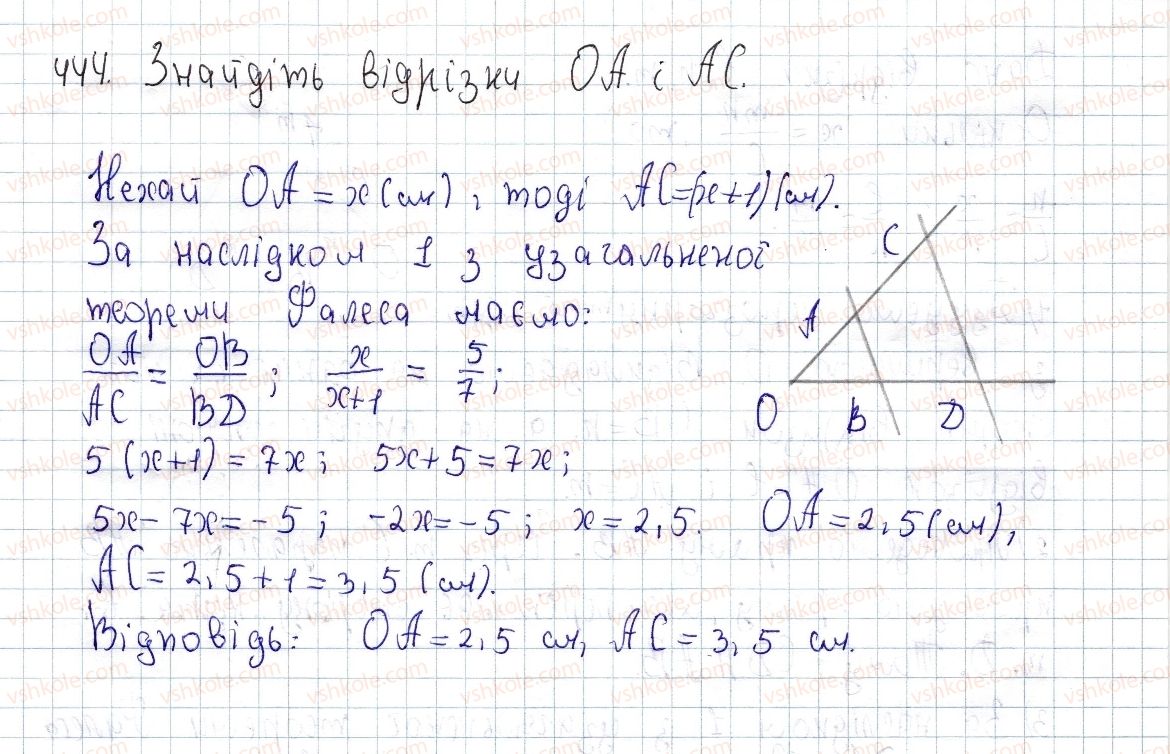 444. Знайдіть відрізки OA і AC.
Нехай OA = x (см), тоді AC = (x+1) (см).
За наслідком 1 з узагальненої
теореми Фалеса маємо:
OA/AC = OB/BD; x/(x+1) = 5/7;
5 (x+1) = 7x; 5x + 5 = 7x;
5x - 7x = -5; -2x = -5; x = 2,5. OA = 2,5 (см),
AC = 2,5 + 1 = 3,5 (см).
Відповідь: OA = 2,5 см, AC = 3,5 см.
C
A
O B D
vshkole.com